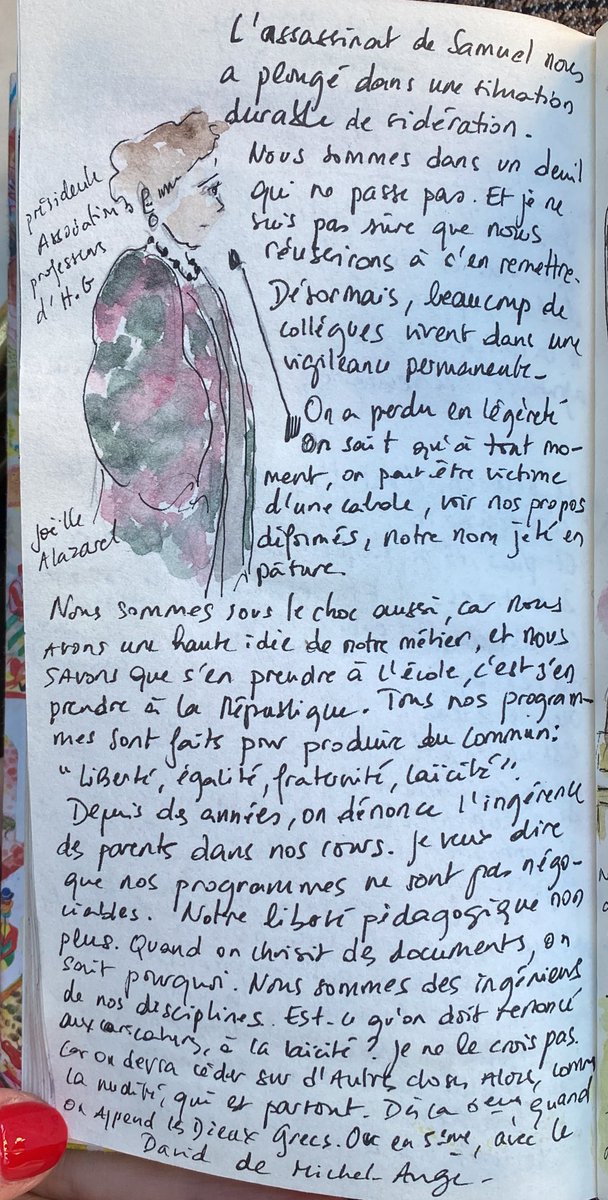 L'assassinat de Samuel nous
a plongé dans une situation
durable de sidération.
Nous sommes dans un deuil
qui ne passe pas. Et je ne
suis pas sûre que nous
réussirons à s'en remettre.
Désormais, beaucoup de
collègues vivent dans une
vigileance permanente.
On a perdu en légèreté
On sait qu'à tout mo-
ment, on peut être victime
d'une cabale, voir nos propos
déformés, notre nom jeté en
pâture.
présidente
Association
professeurs
d'H.G
Joëlle
Alazard
Nous sommes sous le choc aussi, car nous
avons une haute idée de notre métier, et nous
savons que s'en prendre à l'école, c'est s'en
prendre à la République. Tous nos program-
mes sont faits pour produire du commun:
"liberté, égalité, fraternité, laïcité".
Depuis des années, on dénonce l'ingérence
des parents dans nos cours. Je veux dire
que nos programmes ne sont pas négo-
ciables. Notre liberté pédagogique non
plus. Quand on choisit des documents, on
sait pourquoi. Nous sommes des ingénieurs
de nos disciplines. Est-ce qu'on doit renoncé
aux caricatures, à la laïcité? Je ne le crois pas.
Car on devra céder sur d'autres choses Alors, comme
la nudité, qui est partout. Dès la 6eme quand
on apprend les Dieux Grecs. Ou en 5ème, avec le
David de Michel-Ange.